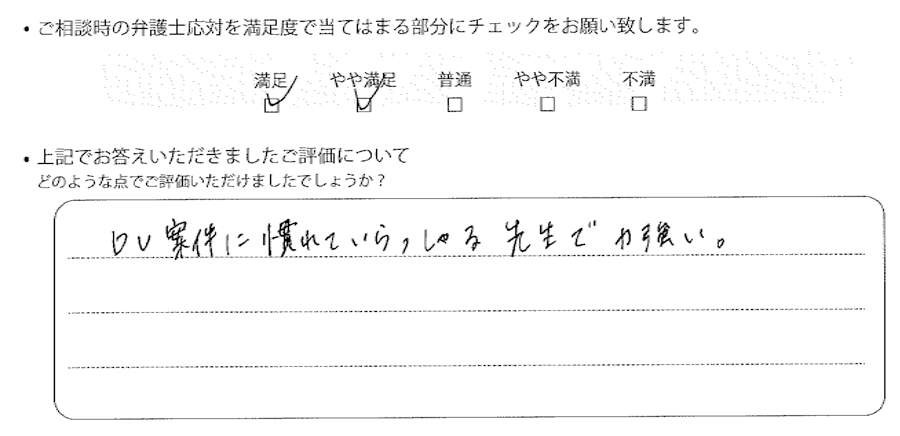 ・ご相談時の弁護士応対を満足度で当てはまる部分にチェックをお願い致します。
満足 やや満足 普通 やや不満 不満
☑ ☑ □ □ □
・上記でお答えいただきましたご評価について
どのような点でご評価いただけましたでしょうか？
DV案件に慣れていらっしゃる先生で力強い。